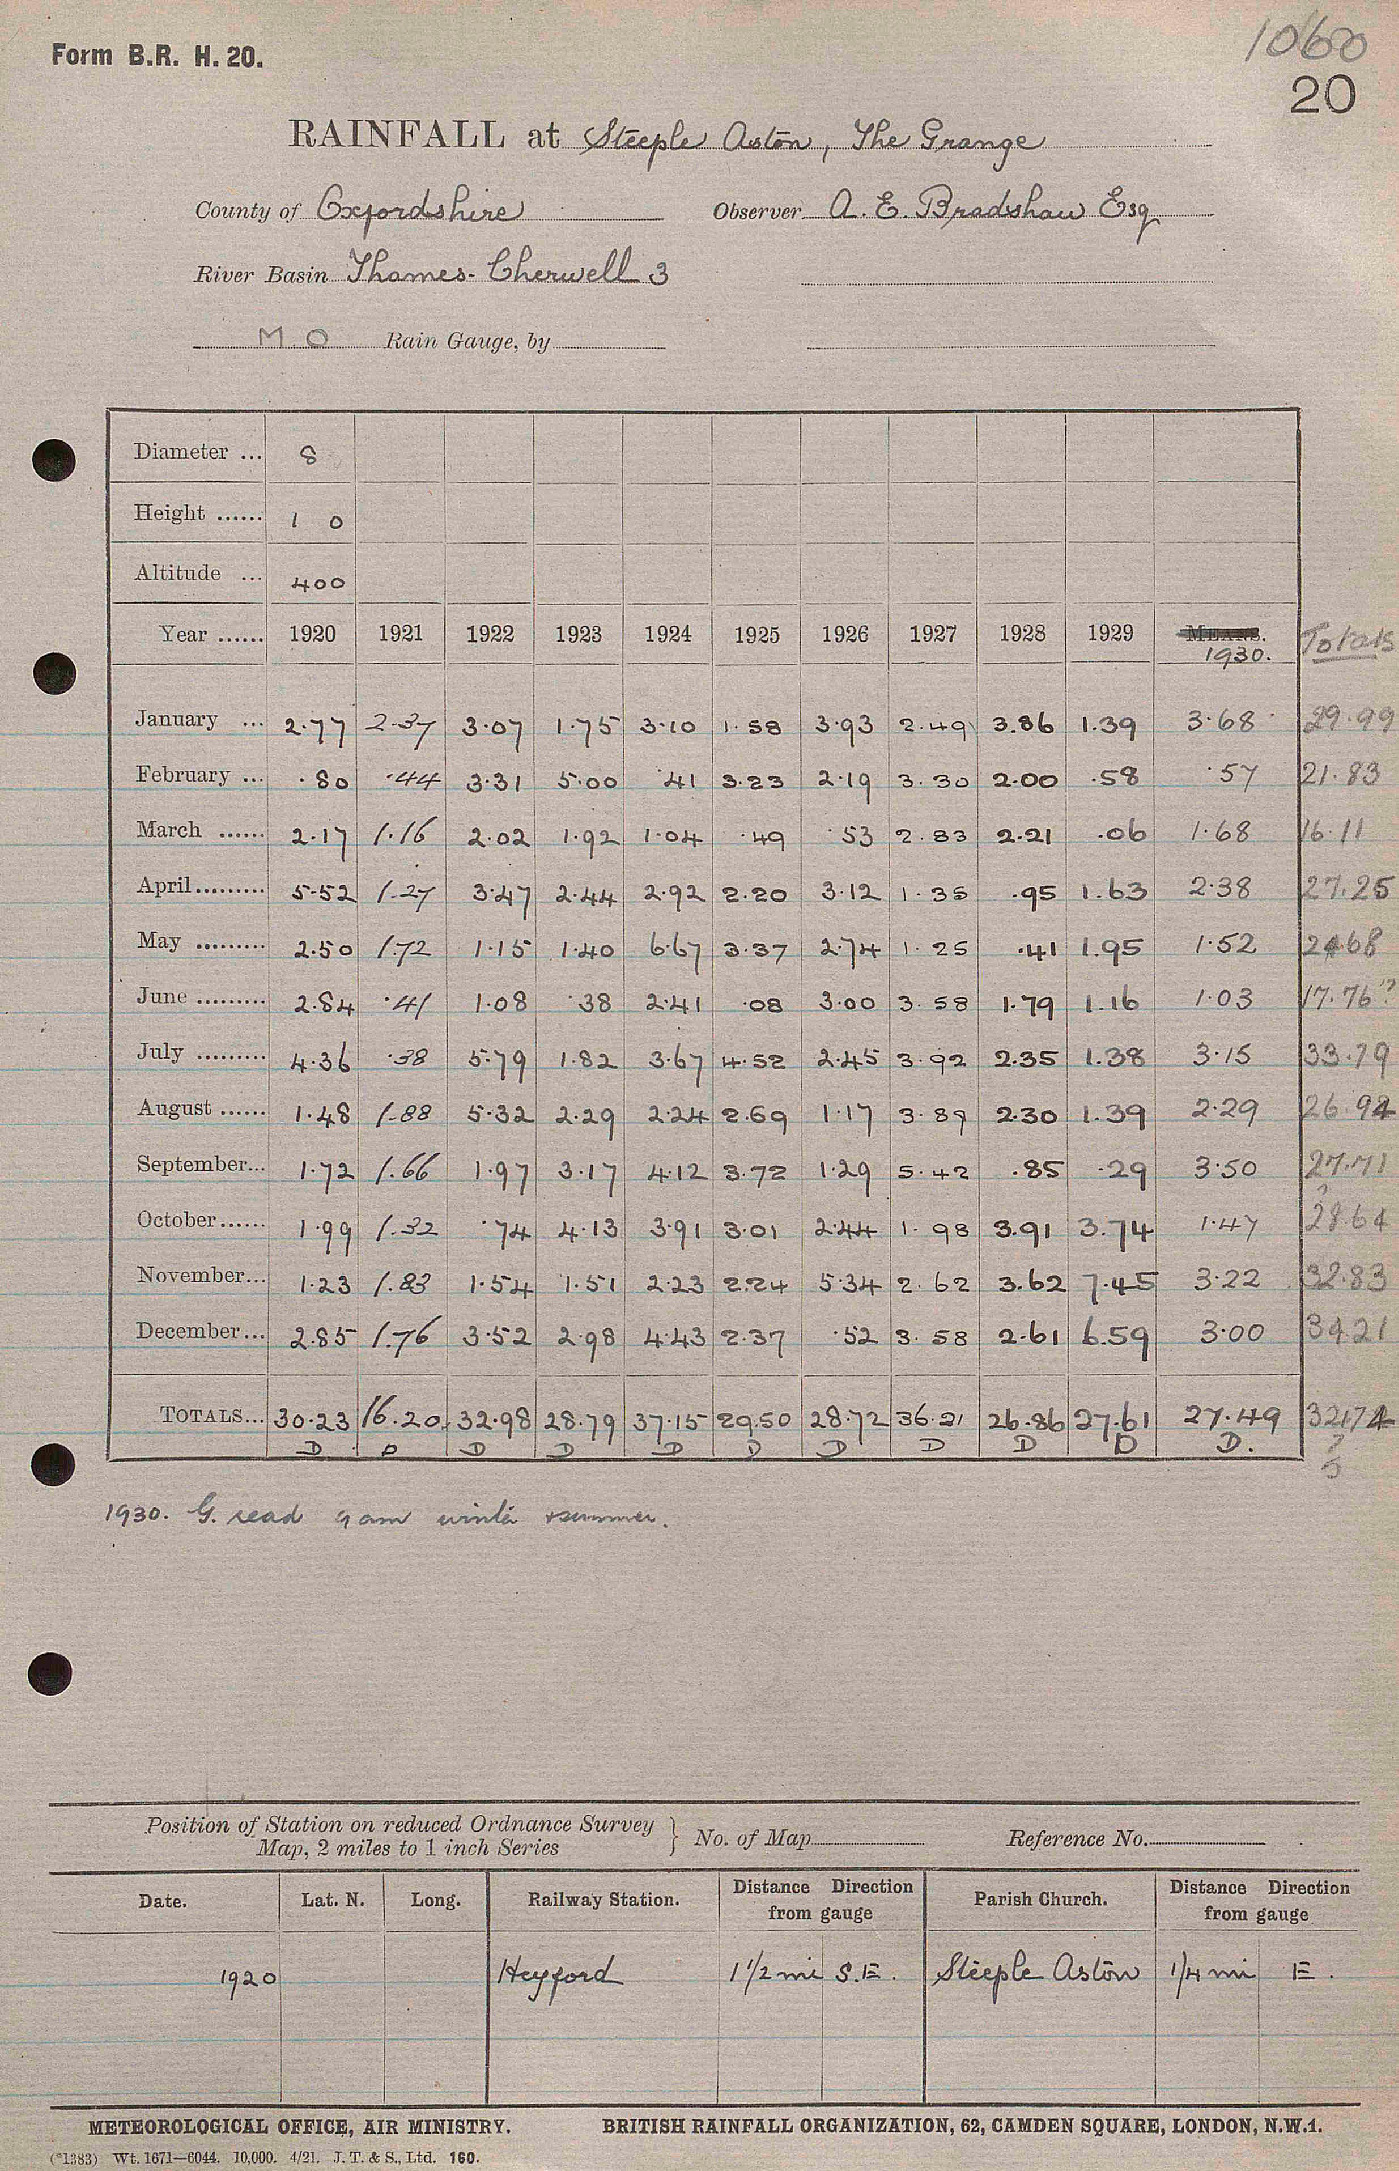 Form B.R. H. 20.
1060
20
RAINFALL at Steeple Aston, The Grange
County of Oxfordshire Observer A. E. Bradshaw Esq
River Basin Thames - Cherwell 3
M O Rain Gauge, by
Diameter ... 8
Height ...... 1 0
Altitude ... 400
Year ...... 1920 1921 1922 1923 1924 1925 1926 1927 1928 1929 MEANS. 1930. Totals
January ... 2.77 2.37 3.07 1.75 3.10 1.58 3.93 2.49 3.86 1.39 3.68 29.99
February ... .80 .44 3.31 5.00 .41 3.23 2.19 3.30 2.00 .58 .57 21.83
March ...... 2.17 1.16 2.02 1.92 1.04 .49 .53 2.83 2.21 .06 1.68 16.11
April......... 5.52 1.27 3.47 2.44 2.92 2.20 3.12 1.35 .95 1.63 2.38 27.25
May ......... 2.50 1.72 1.15 1.40 6.67 3.37 2.74 1.25 .41 1.95 1.52 24.68
June ......... 2.84 .41 1.08 .38 2.41 .08 3.00 3.58 1.79 1.16 1.03 17.76?
July ......... 4.36 .38 5.79 1.82 3.67 4.52 2.45 3.92 2.35 1.38 3.15 33.79
August ...... 1.48 1.88 5.32 2.29 2.24 2.69 1.17 3.89 2.30 1.39 2.29 26.94
September... 1.72 1.66 1.97 3.17 4.12 3.72 1.29 5.42 .85 .29 3.50 27.71
October...... 1.99 1.32 .74 4.13 3.91 3.01 2.44 1.98 3.91 3.74 1.47 28.64
November... 1.23 1.83 1.54 1.51 2.23 2.24 5.34 2.62 3.62 7.45 3.22 32.83
December... 2.85 1.76 3.52 2.98 4.43 2.37 .52 3.58 2.61 6.59 3.00 34.21
TOTALS... 30.23 16.20 32.98 28.79 37.15 29.50 28.72 36.21 26.86 27.61 27.49 321.74
D D D D D D D D D D D.
1930. G. read 9 am winter & summer.
Position of Station on reduced Ordnance Survey
Map, 2 miles to 1 inch Series } No. of Map Reference No.
Date. Lat. N. Long. Railway Station. Distance Direction from gauge Parish Church. Distance Direction from gauge
1920 Heyford 1 1/2 mi S.E. Steeple Aston 1/4 mi E.
METEOROLOGICAL OFFICE, AIR MINISTRY. BRITISH RAINFALL ORGANIZATION, 62, CAMDEN SQUARE, LONDON, N.W.1.
(*1383) Wt. 1671—6044. 10,000. 4/21. J. T. & S., Ltd. 160.